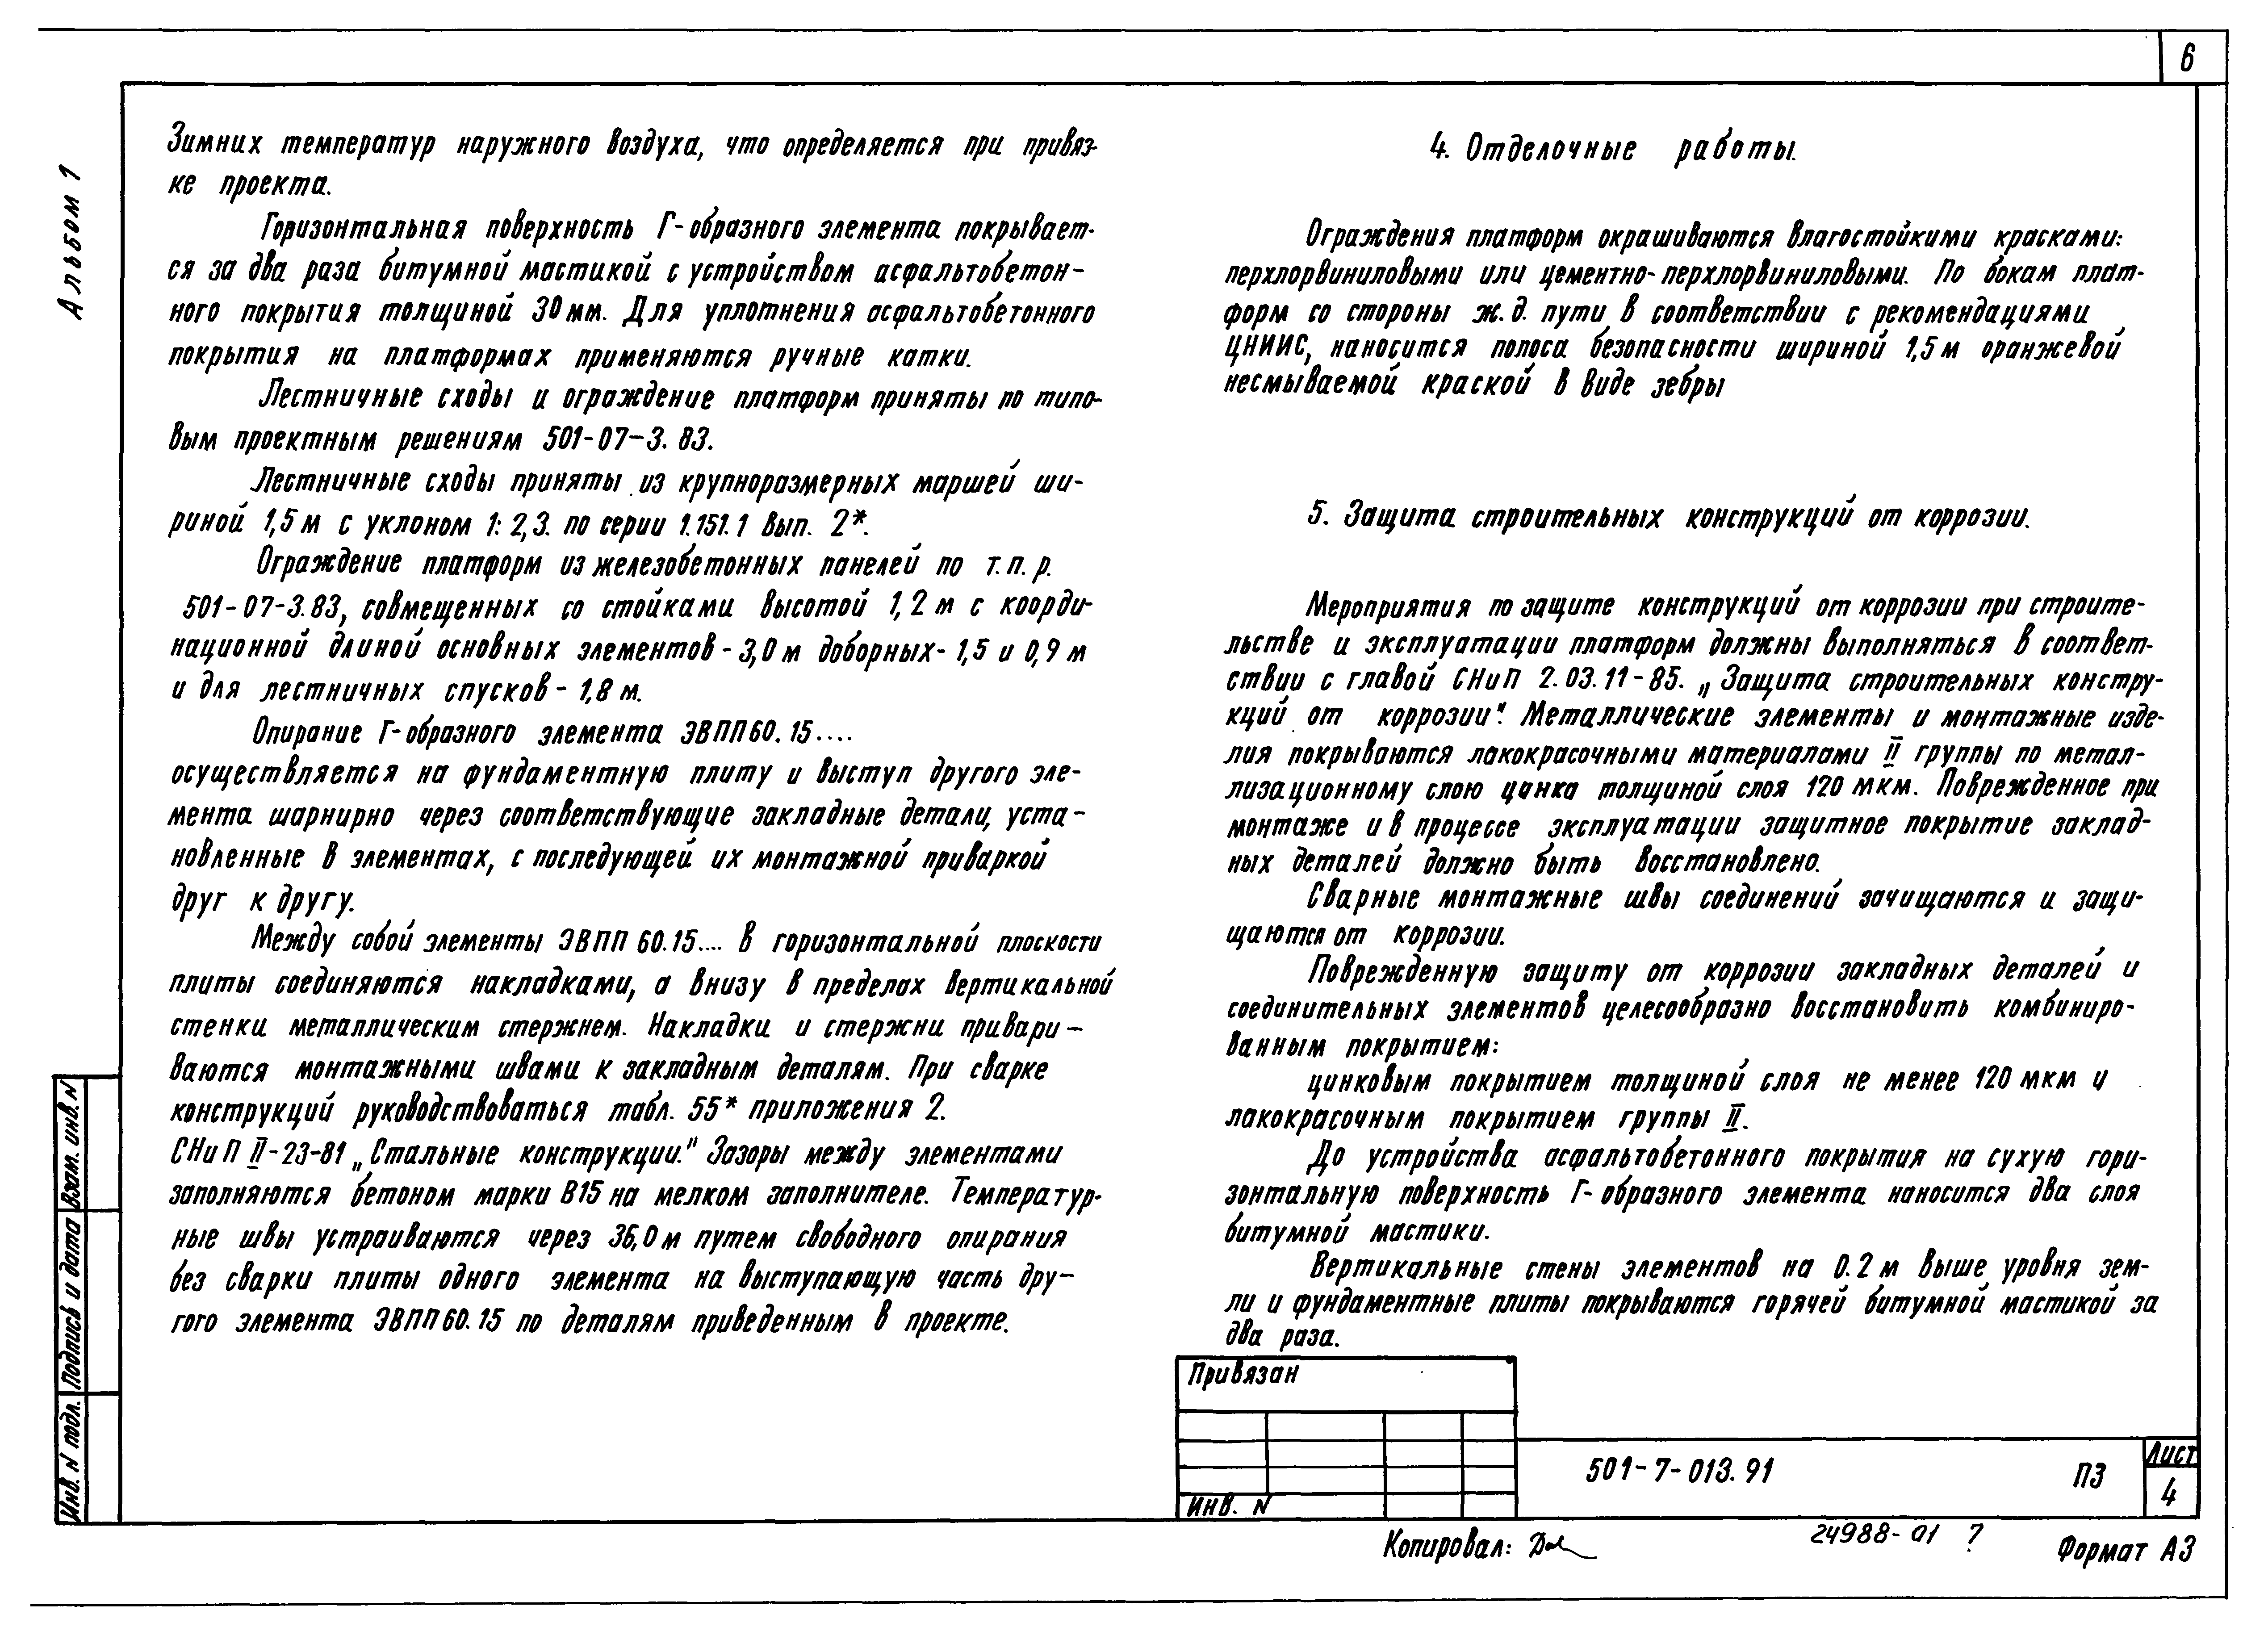 6
Альбом 1
Зимних температур наружного воздуха, что определяется при привяз-
ке проекта.
Горизонтальная поверхность Г-образного элемента покрывает-
ся за два раза битумной мастикой с устройством асфальтобетон-
ного покрытия толщиной 30 мм. Для уплотнения асфальтобетонного
покрытия на платформах применяются ручные катки.
Лестничные сходы и ограждение платформ приняты по типо-
вым проектным решениям 501-07-3.83.
Лестничные сходы приняты из крупноразмерных маршей ши-
риной 1,5 м с уклоном 1: 2,3. по серии 1.151.1 вып. 2*.
Ограждение платформ из железобетонных панелей по т.п.р.
501-07-3.83, совмещенных со стойками высотой 1,2 м с коорди-
национной длиной основных элементов - 3,0 м доборных - 1,5 и 0,9 м
и для лестничных спусков - 1,8 м.
Опирание Г-образного элемента ЭВПП60.15....
осуществляется на фундаментную плиту и выступ другого эле-
мента шарнирно через соответствующие закладные детали, уста-
новленные в элементах, с последующей их монтажной приваркой
друг к другу.
Между собой элементы ЭВПП 60.15.... в горизонтальной плоскости
плиты соединяются накладками, а внизу в пределах вертикальной
стенки металлическим стержнем. Накладки и стержни привари-
ваются монтажными швами к закладным деталям. При сварке
конструкций руководствоваться табл. 55* приложения 2.
СНиП II-23-81 „Стальные конструкции." Зазоры между элементами
заполняются бетоном марки В15 на мелком заполнителе. Температур-
ные швы устраиваются через 36,0 м путем свободного опирания
без сварки плиты одного элемента на выступающую часть дру-
гого элемента ЭВПП60.15 по деталям приведенным в проекте.
4. Отделочные работы.
Ограждения платформ окрашиваются влагостойкими красками:
перхлорвиниловыми или цементно-перхлорвиниловыми. По бокам плат-
форм со стороны ж.д. пути в соответствии с рекомендациями
ЦНИИС, наносится полоса безопасности шириной 1,5 м оранжевой
несмываемой краской в виде зебры
5. Защита строительных конструкций от коррозии.
Мероприятия по защите конструкций от коррозии при строите-
льстве и эксплуатации платформ должны выполняться в соответ-
ствии с главой СНиП 2.03.11-85. „Защита строительных констру-
кций от коррозии". Металлические элементы и монтажные изде-
лия покрываются лакокрасочными материалами II группы по метал-
лизационному слою цинка толщиной слоя 120 мкм. Поврежденное при
монтаже и в процессе эксплуатации защитное покрытие заклад-
ных деталей должно быть восстановлено.
Сварные монтажные швы соединений зачищаются и защи-
щаются от коррозии.
Поврежденную защиту от коррозии закладных деталей и
соединительных элементов целесообразно восстановить комбиниро-
ванным покрытием:
цинковым покрытием толщиной слоя не менее 120 мкм и
лакокрасочным покрытием группы II.
До устройства асфальтобетонного покрытия на сухую гори-
зонтальную поверхность Г-образного элемента наносится два слоя
битумной мастики.
Вертикальные стены элементов на 0.2 м выше уровня зем-
ли и фундаментные плиты покрываются горячей битумной мастикой за
два раза.
Привязан
Инв. N
501-7-013.91
ПЗ
Лист
4
Инв. N подл.
Подпись и дата
Взам. инв. N
Копировал:
24988-01 7
Формат А3